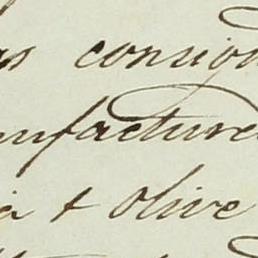 as consign
nufacture
a + olive